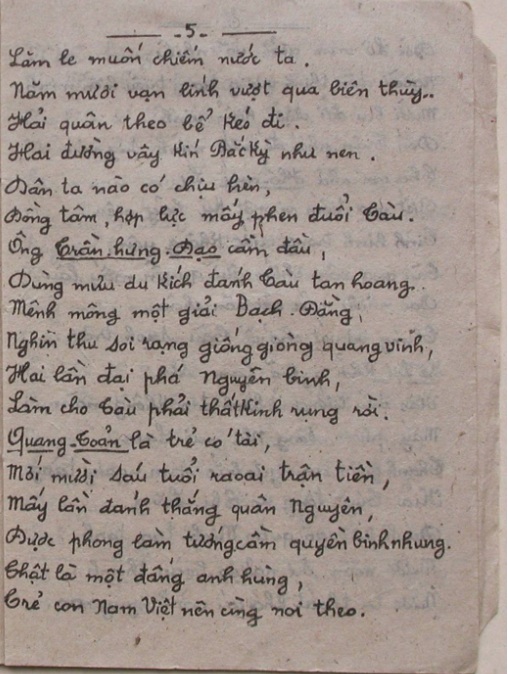 - 5 -
Lăm le muốn chiếm nước ta.
Năm mươi vạn lính vượt qua biên thùy..
Hải quân theo bể kéo đi.
Hai đường vây kín Bắc Kỳ như nen.
Dân ta nào có chịu hèn,
Đồng tâm, hợp lực mấy phen đuổi Tàu.
Ông Trần-hưng-Đạo cầm đầu,
Dùng mưu du kích đánh Tàu tan hoang.
Mênh mông một giải Bạch-Đằng,
Nghìn thu soi rạng giống giòng quang vinh,
Hai lần đại phá Nguyên binh,
Làm cho Tàu phải thất kinh rụng rời.
Quang-Toản là trẻ có tài,
Mới mười sáu tuổi ra oai trận tiền,
Mấy lần đánh thắng quân Nguyên,
Được phong làm tướng cầm quyền binh nhung.
Thật là một đấng anh hùng,
Trẻ con Nam Việt nên cùng noi theo.